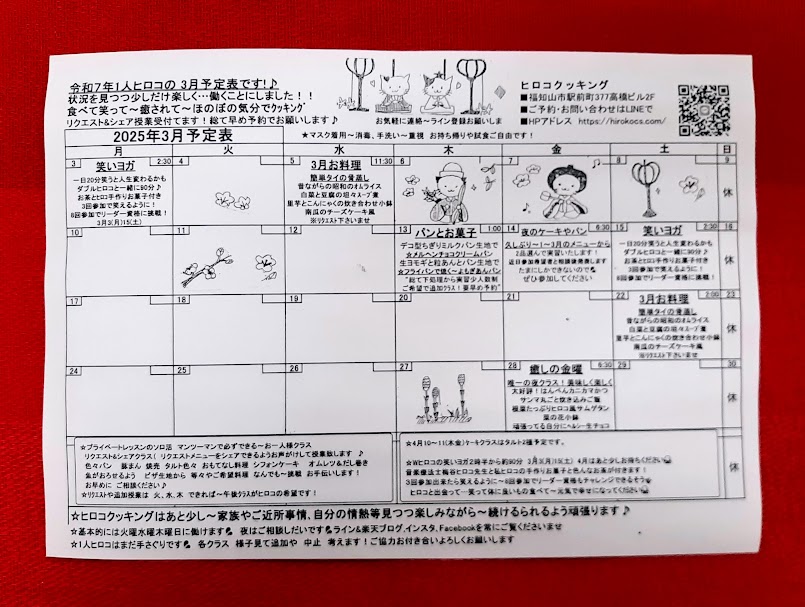 令和7年1人ヒロコの 3月予定表です!♪
状況を見つつ少しだけ楽しく…働くことにしました!!
食べて笑って~癒されて~ほのぼの気分でクッキング
リクエスト&シェア授業受付てます!総て早め予約でお願いします♪
お気軽に連絡~ライン登録お願いしま
ヒロコクッキング
■福知山市駅前町377高橋ビル2F
■ご予約・お問い合わせはLINEで
■HPアドレス https://hirokocs.com/
2025年3月予定表
★マスク着用~消毒、手洗い~重視 お持ち帰りや試食ご自由です!
月 火 水 木 金 土 日
3 笑いヨガ 2:30
一日20分笑うと人生変わるかも
ダブルヒロコと一緒に90分♪
お茶とヒロコ手作りお菓子付き
3回参加で笑えるように!
8回参加でリーダー資格に挑戦!
3月3(月)15(土)
4
5 3月お料理 11:30
簡単タイの香蒸し
昔ながらの昭和のオムライス
白菜と豆腐の坦々スープ煮
里芋とこんにゃくの炊き合わせ小鉢
南瓜のチーズケーキ風
※リクエスト下さいませ
6
7
8
9
休
10
11
12
13 パンとお菓子 1:00
デコ型ちぎりミルクパン生地で
☆メルヘンチョコクリームパン
生ヨモギと粒あんとパン生地で
☆フライパンで焼く~よもぎあんパン
"総て下処理から実習少人数制
ご希望で追加クラス!要早め予約"
14 夜のケーキやパン 6:30
久しぶり~1~3月のメニューから
2品選んで実習いたします!
近日参加希望者と相談後発表します
たまにしかできないので
ぜひ参加してください
15 笑いヨガ 2:30
一日20分笑うと人生変わるかも
ダブルヒロコと一緒に90分♪
お茶とヒロコ手作りお菓子付き
3回参加で笑えるように!
8回参加でリーダー資格に挑戦!
16
休
17
18
19
20
21
22 3月お料理 2:00
簡単タイの香蒸し
昔ながらの昭和のオムライス
白菜と豆腐の坦々スープ煮
里芋とこんにゃくの炊き合わせ小鉢
南瓜のチーズケーキ風
※リクエスト下さいませ
23
休
24
25
26
27
28 癒しの金曜 6:30
唯一の夜クラス!美味しく楽しく
大好評!はんぺんカニカマかつ
サンマ丸ごと炊き込みご飯
根菜たっぷりヒロコ風サムゲタン
菜の花小鉢
頑張ってる自分にヘルシー生チョコ
29
30
休
☆プライベートレッスンのソロ活 マンツーマンで必ずできる~お一人様クラス
リクエスト&シェアクラス( リクエストメニューをシェアできるようお声がけして授業致します ♪
色々パン 豚まん 焼売 タルト色々 おもてなし料理 シフォンケーキ オムレツ&だし巻き
魚がおろせるよう ピザ生地から 等々やご希望料理 なんでも~挑戦 お手伝いします!
お早めに ご相談ください♪
☆リクエストや追加授業は 火、水、木 できれば~午後クラスがヒロコの希望です!
☆4月10~11(木金)ケーキクラスはタルト2種予定です。
☆Wヒロコの笑いヨガ2時半から約90分 3月3(月)15(土) 4月はあと少しお待ちください
音楽療法士梅谷ヒロコ先生と私ヒロコの手作りお菓子と色んなお茶が付きます!
3回参加出来たら笑えるように~8回参加でリーダー資格もチャレンジできるそう
ヒロコと出会って~笑って体に良いもの食べて~元気で幸せになってください
休
☆ヒロコクッキングはあと少し~家族やご近所事情、自分の情熱等見つつ楽しみながら~続けるられるよう頑張ります♪
☆基本的には火曜水曜木曜日に働けます 夜はご相談しだいです ライン&楽天ブログ,インスタ,Facebookを常にご覧くださいませ
☆1人ヒロコはまだ手さぐりです 各クラス 様子見て追加や 中止 考えます!ご協力お付き合いよろしくお願いします